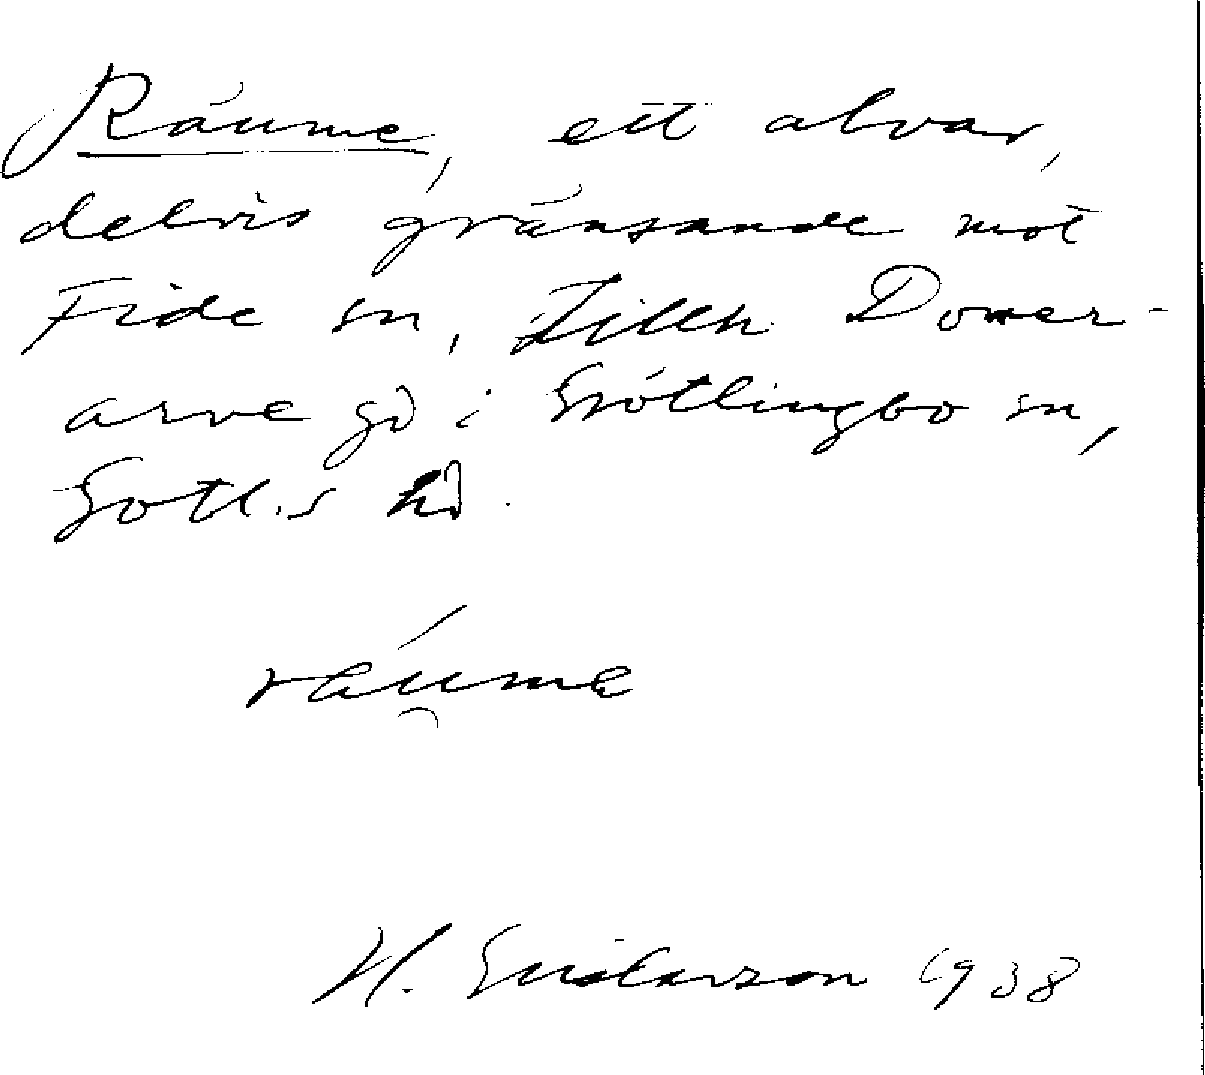 Räume, ett alvar,
delvis gränsande mot
Fide sn, tillh. Domer-
arve gd i Grötlingbo sn,
Gotl.s hd.
ráu̯me
H. Gustavson 1938